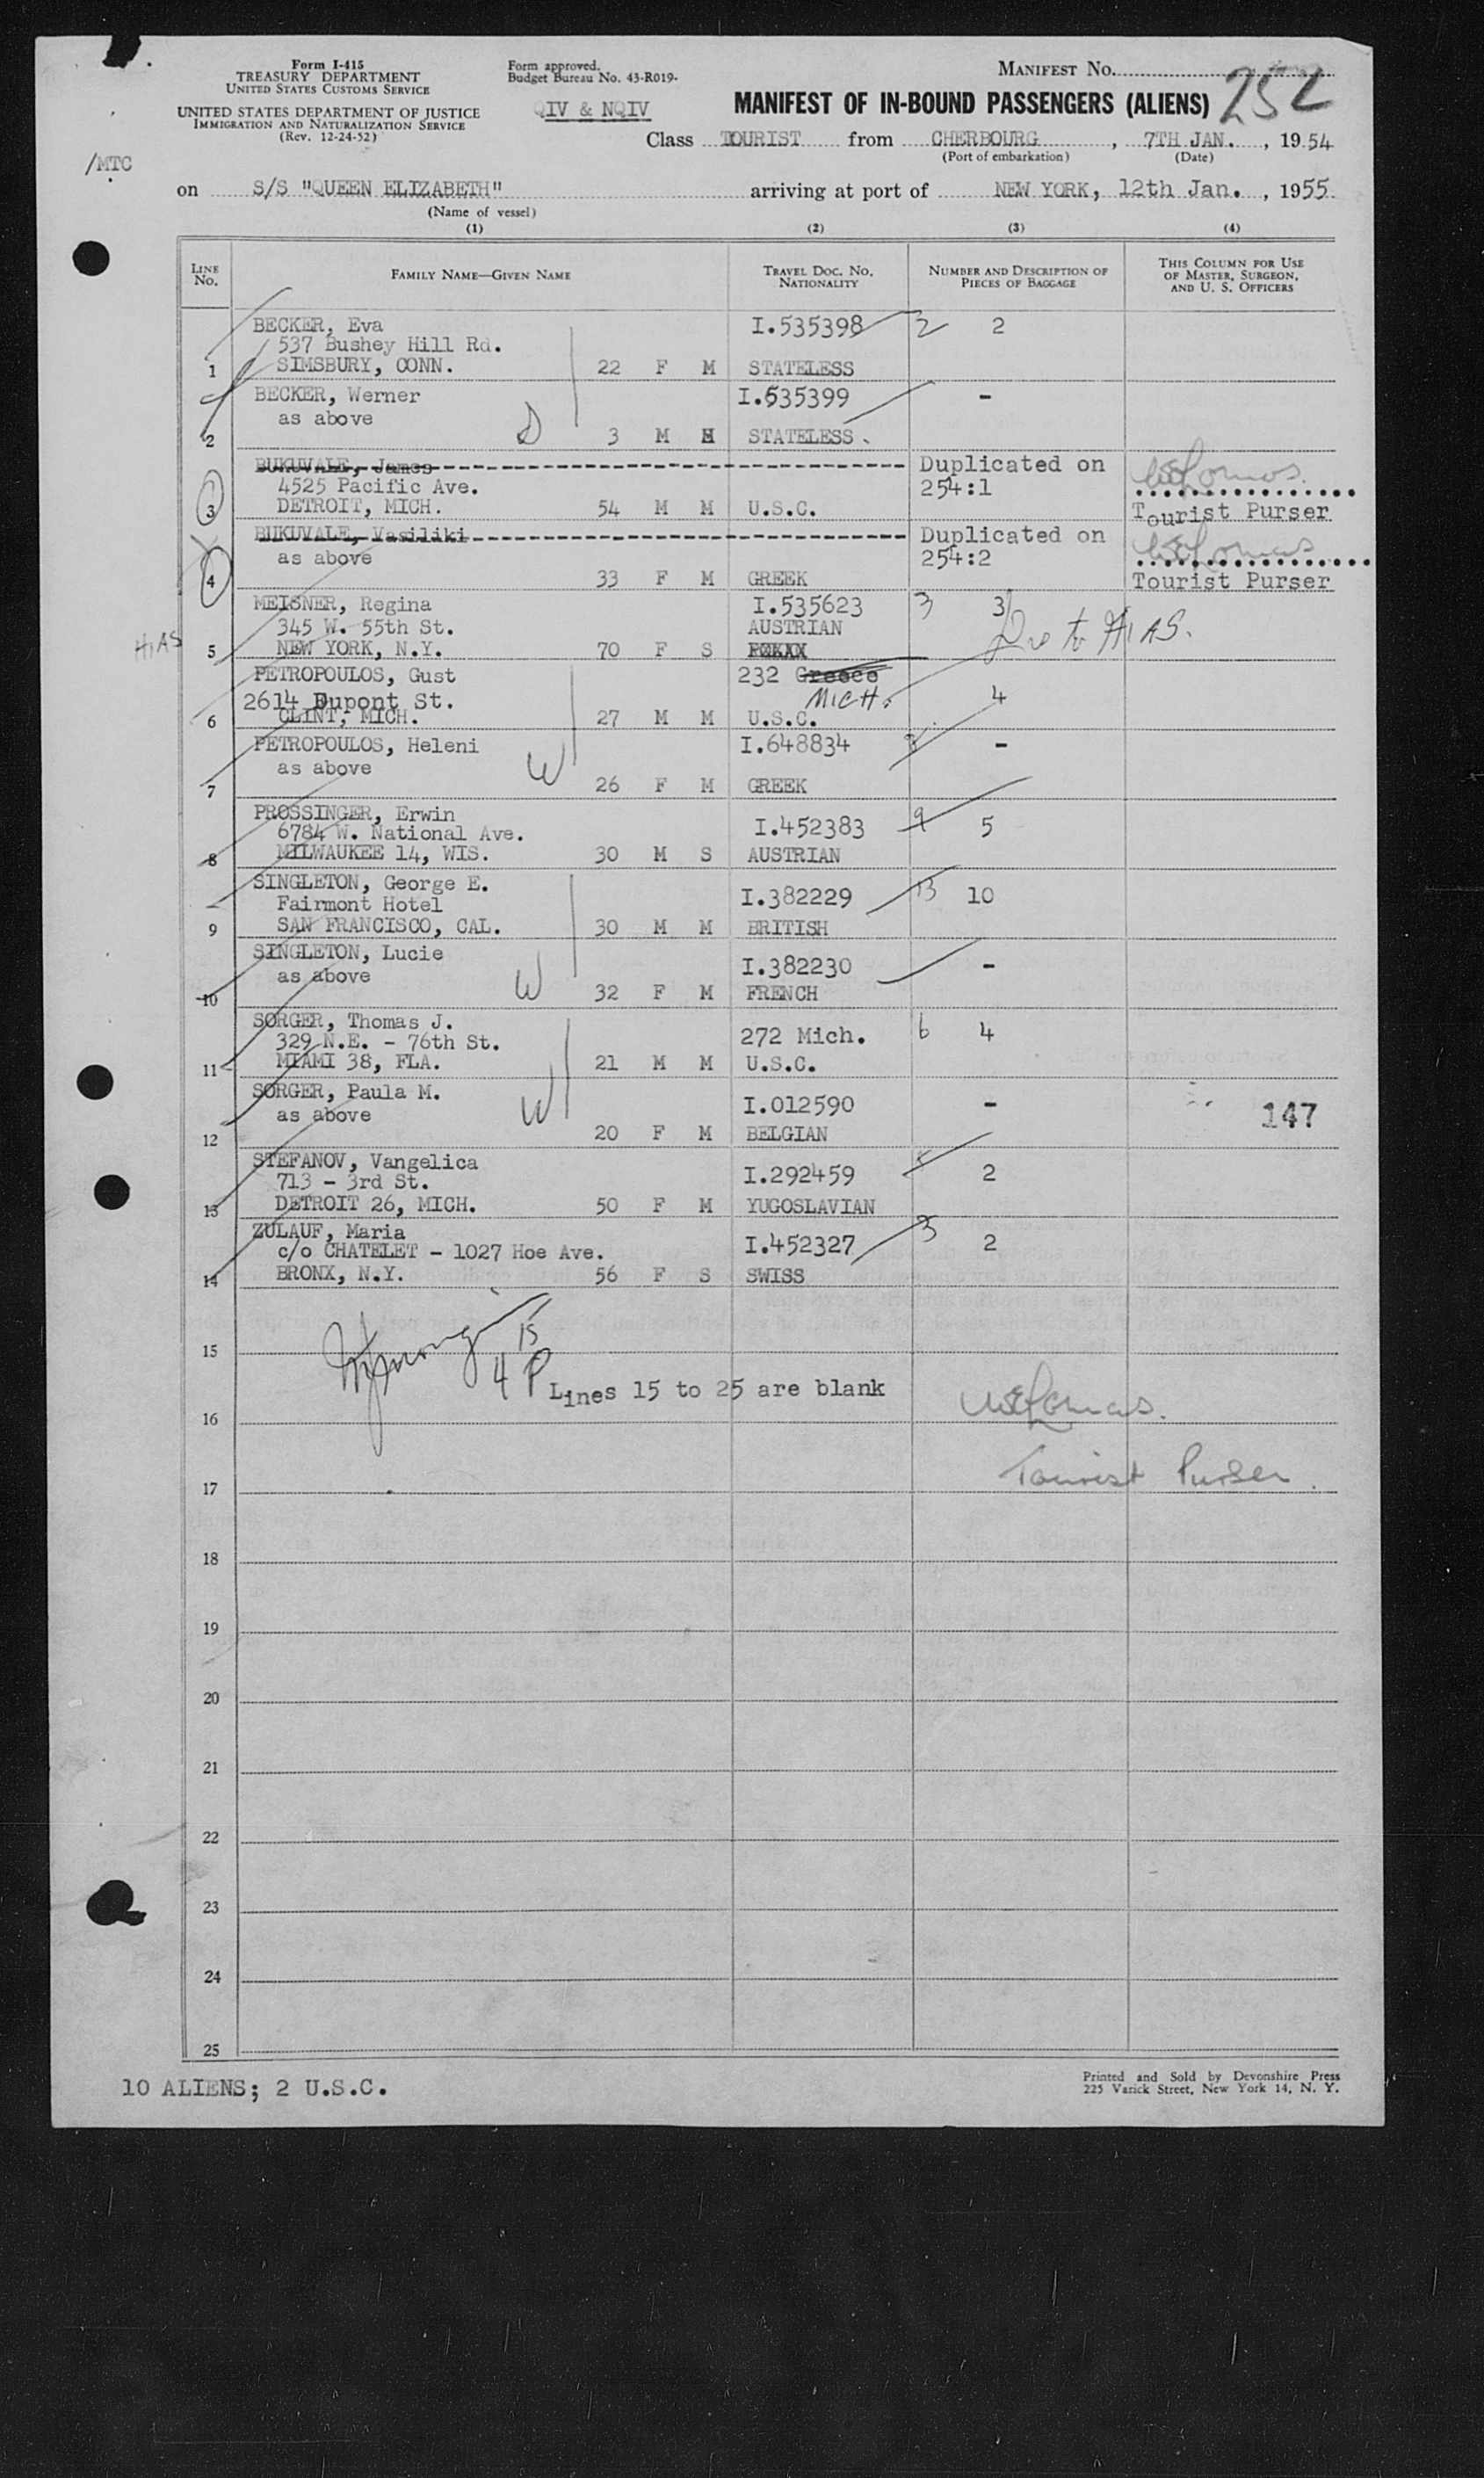 Form I-415
TREASURY DEPARTMENT
UNITED STATES CUSTOMS SERVICE
UNITED STATES DEPARTMENT OF JUSTICE
IMMIGRATION AND NATURALIZATION SERVICE
(Rev. 12-24-52)
Form approved.
Budget Bureau No. 43-R019-
QIV & NQIV
MANIFEST NO. 252
MANIFEST OF IN-BOUND PASSENGERS (ALIENS)
/MTC
Class TOURIST from CHERBOURG, 7TH JAN., 1954
(Port of embarkation) (Date)
on S/S "QUEEN ELIZABETH" arriving at port of NEW YORK, 12th Jan., 1955
(Name of vessel)
(1) (2) (3) (4)
LINE NO. FAMILY NAME—GIVEN NAME TRAVEL DOC. NO. NATIONALITY NUMBER AND DESCRIPTION OF PIECES OF BAGGAGE THIS COLUMN FOR USE OF MASTER, SURGEON, AND U. S. OFFICERS
BECKER, Eva I.535398 2 2
537 Bushey Hill Rd.
1 SIMSBURY, CONN. 22 F M STATELESS
BECKER, Werner I.535399 -
as above
2 D 3 M STATELESS
BUKUVALE, James Duplicated on
4525 Pacific Ave. 254:1
3 DETROIT, MICH. 54 M M U.S.C. Tourist Purser
BUKUVALE, Vasiliki Duplicated on
as above 254:2
4 33 F M GREEK Tourist Purser
MEISNER, Regina I.535623 3 3
345 W. 55th St. AUSTRIAN Due to HIAS.
HIAS 5 NEW YORK, N.Y. 70 F S
PETROPOULOS, Gust 232 Greece
2614 Dupont St. MICH. 4
6 CLINT, MICH. 27 M M U.S.C.
PETROPOULOS, Heleni I.648834 -
as above W
7 26 F M GREEK
PROSSINGER, Erwin
6784 W. National Ave. I.452383 9 5
8 MILWAUKEE 14, WIS. 30 M S AUSTRIAN
SINGLETON, George E.
Fairmont Hotel I.382229 13 10
9 SAN FRANCISCO, CAL. 30 M M BRITISH
SINGLETON, Lucie I.382230 -
as above W
10 32 F M FRENCH
SORGER, Thomas J.
329 N.E. - 76th St. 272 Mich. 6 4
11 MIAMI 38, FLA. 21 M M U.S.C.
SORGER, Paula M. I.012590 - 147
as above W
12 20 F M BELGIAN
STEFANOV, Vangelica
713 - 3rd St. I.292459 2
13 DETROIT 26, MICH. 50 F M YUGOSLAVIAN
ZULAUF, Maria
c/o CHATELET - 1027 Hoe Ave. I.452327 3 2
14 BRONX, N.Y. 56 F S SWISS
15
15
4 P Lines 15 to 25 are blank
16
Tourist Purser
17
18
19
20
21
22
23
24
25
10 ALIENS; 2 U.S.C.
Printed and Sold by Devonshire Press
225 Varick Street, New York 14, N. Y.